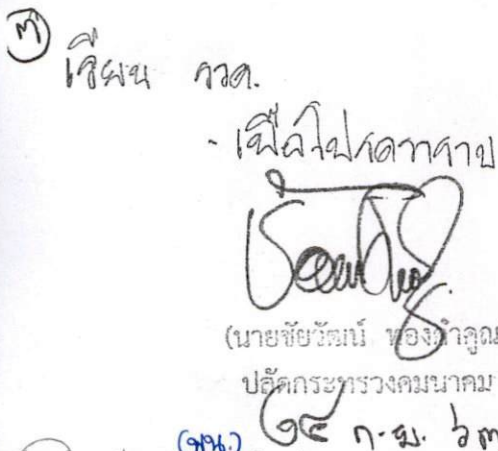 ๓
เรียน รวค.
- เพื่อโปรดทราบ
(นายชัยวัฒน์ ทองคำคูณ
ปลัดกระทรวงคมนาคม
๑๔ ก.ย. ๖๓
(พน.)